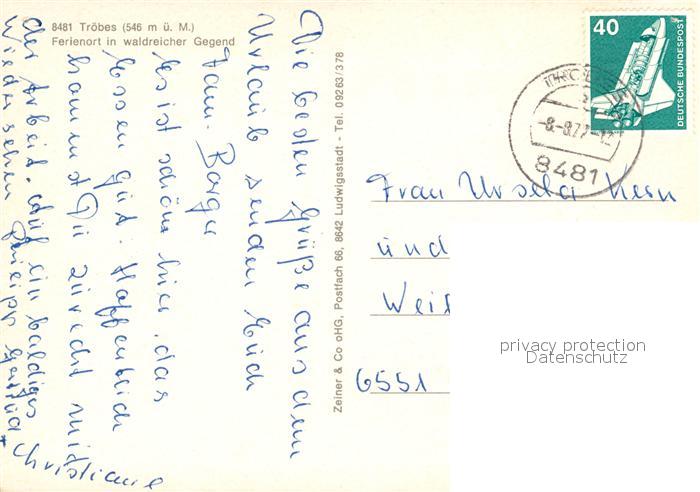 8481 Tröbes (546 m ü. M.)
Ferienort in waldreicher Gegend
Die besten Grüße aus dem
Urlaub senden Euch
Fam. Barger
Es ist schön hier, das
Essen gut. Hoffentlich
kommst Du zurecht mit
der Arbeit. Auf ein baldiges
Wiedersehen
+ Christiane
Zeiner & Co oHG, Postfach 66, 8642 Ludwigsstadt - Tel. 09263/378
40
DEUTSCHE BUNDESPOST
-8.-8.77-12
8481
Frau Ursela Kern
und
6551
privacy protection
Datenschutz